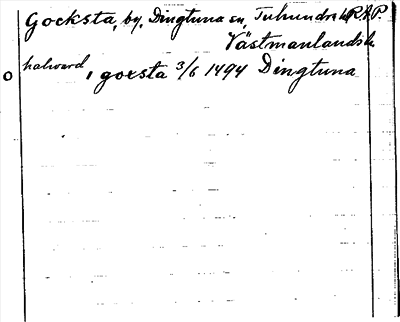 Gocksta, by, Dingtuna sn, Tuhundra h. RAP.
Västmanlands l.
halward i goxsta 3/6 1494 Dingtuna